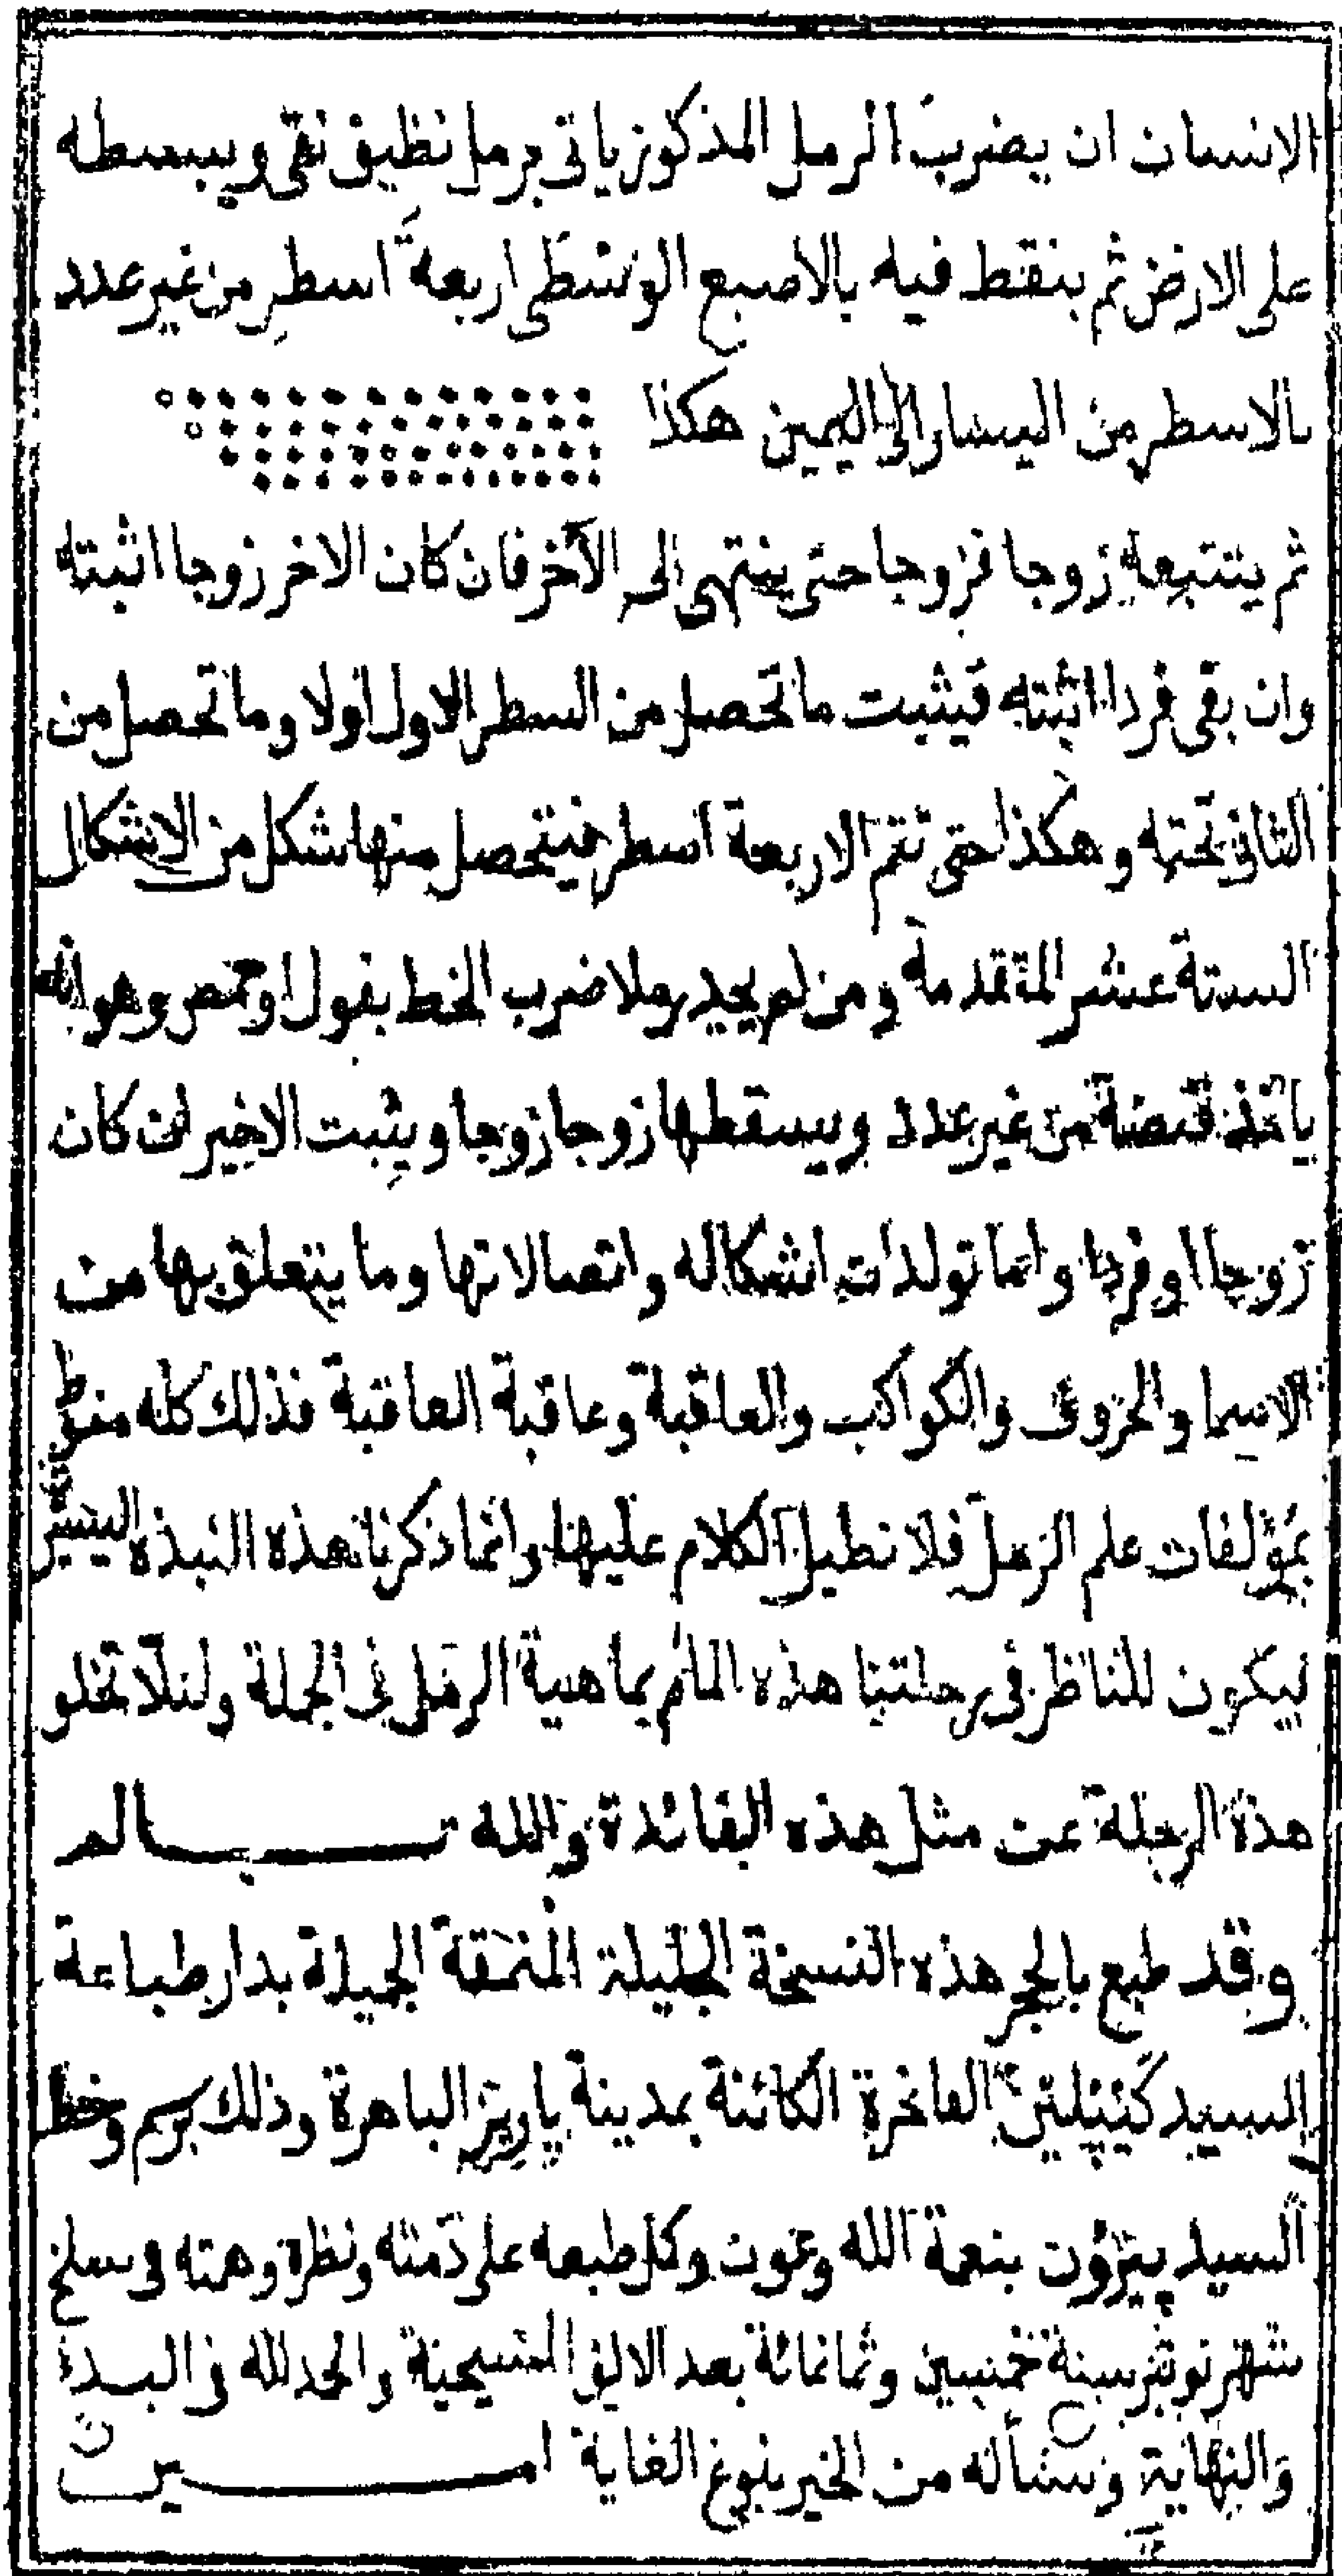 الانسان ان يضرب الرمل المذكور ياتى برمل نظيف نقى ويبسطه
على الارض ثم ينقط فيه بالاصبع الوسطى اربعة اسطر من غير عدد
بالاسطر من اليسار الى اليمين هكذا
ثم يتتبعه زوجا فزوجا حتى ينتهى الى الآخر فان كان الاخر زوجا اثبته
وان بقى فردا اثبته فيثبت ما تحصل من السطر الاول اولا وما تحصل من
الثانى تحته و هكذا حتى تتم الاربعة اسطر فيتحصل منها شكل من الاشكال
الستة عشر المتقدمة و من لم يجد رملا ضرب الخط بفول او حمص وهو انه
ياخذ قبضة من غير عدد ويسقطها زوجا زوجا ويثبت الاخير ان كان
زوجا او فردا واما تولدات اشكاله واتصالاتها وما يتعلق بها من
الاسما والحروف والكواكب والعاقبة وعاقبة العاقبة فذلك كله منوط
بمؤلفات علم الرمل فلا نطيل الكلام عليها وانما ذكرنا هذه النبذة اليسيرة
ليكون للناظر فى رحلتنا هذه المام بماهية الرمل فى الجملة ولئلا تخلو
هذه الرحلة عن مثل هذه الفائدة والله
وقد طبع بالحجر هذه النسخة الجليلة المنمقة الجميلة بدار طباعة
السيد كپپلين الفاخرة الكائنة بمدينة پاريز الباهرة وذلك برسم وخط
السيد پيرون بنعمة الله وعون وكل طبعه على ذمته ونظره وهمته فى سلخ
شهر نونبر سنة خمسين وثمانمائة بعد الالف المسيحية والحمد لله فى البدء
والنهاية ونسأله من الخير بلوغ الغاية امــــين